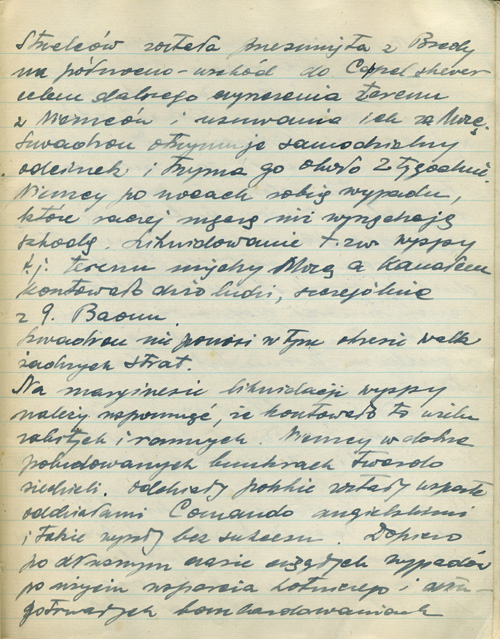 Strzelców została przesunięta z Bredy
na północno-wschód do Capelsche ver
celem dalszego wyparcia terenu
z Niemców i usuwania ich za Mozę.
Szwadron otrzymuje samodzielny
odcinek i trzyma go około 2 tygodnie.
Niemcy po nocach robią wypady,
które raczej męczą niż wyrządzają
szkodę. Likwidowanie t.zw. wyspy
t.j. terenu między Mozą a Kanałem
kosztowało dużo ludzi, szczególnie
z 9. Baonu
Szwadron nie ponosi w tym okresie walk
żadnych strat.
Na marginesie likwidacji wyspy
należy wspomnieć, że kosztowało to wielu
zabitych i rannych. Niemcy w dobrze
pobudowanych bunkrach twardo
siedzieli. Oddziały polskie zostały wsparte
oddziałami Comando angielskimi
i także wyszły bez sukcesu. Dopiero
po dłuższym czasie ciągłych wypadów
po użyciu wsparcia lotniczego i dłu-
gotrwałych bombardowaniach